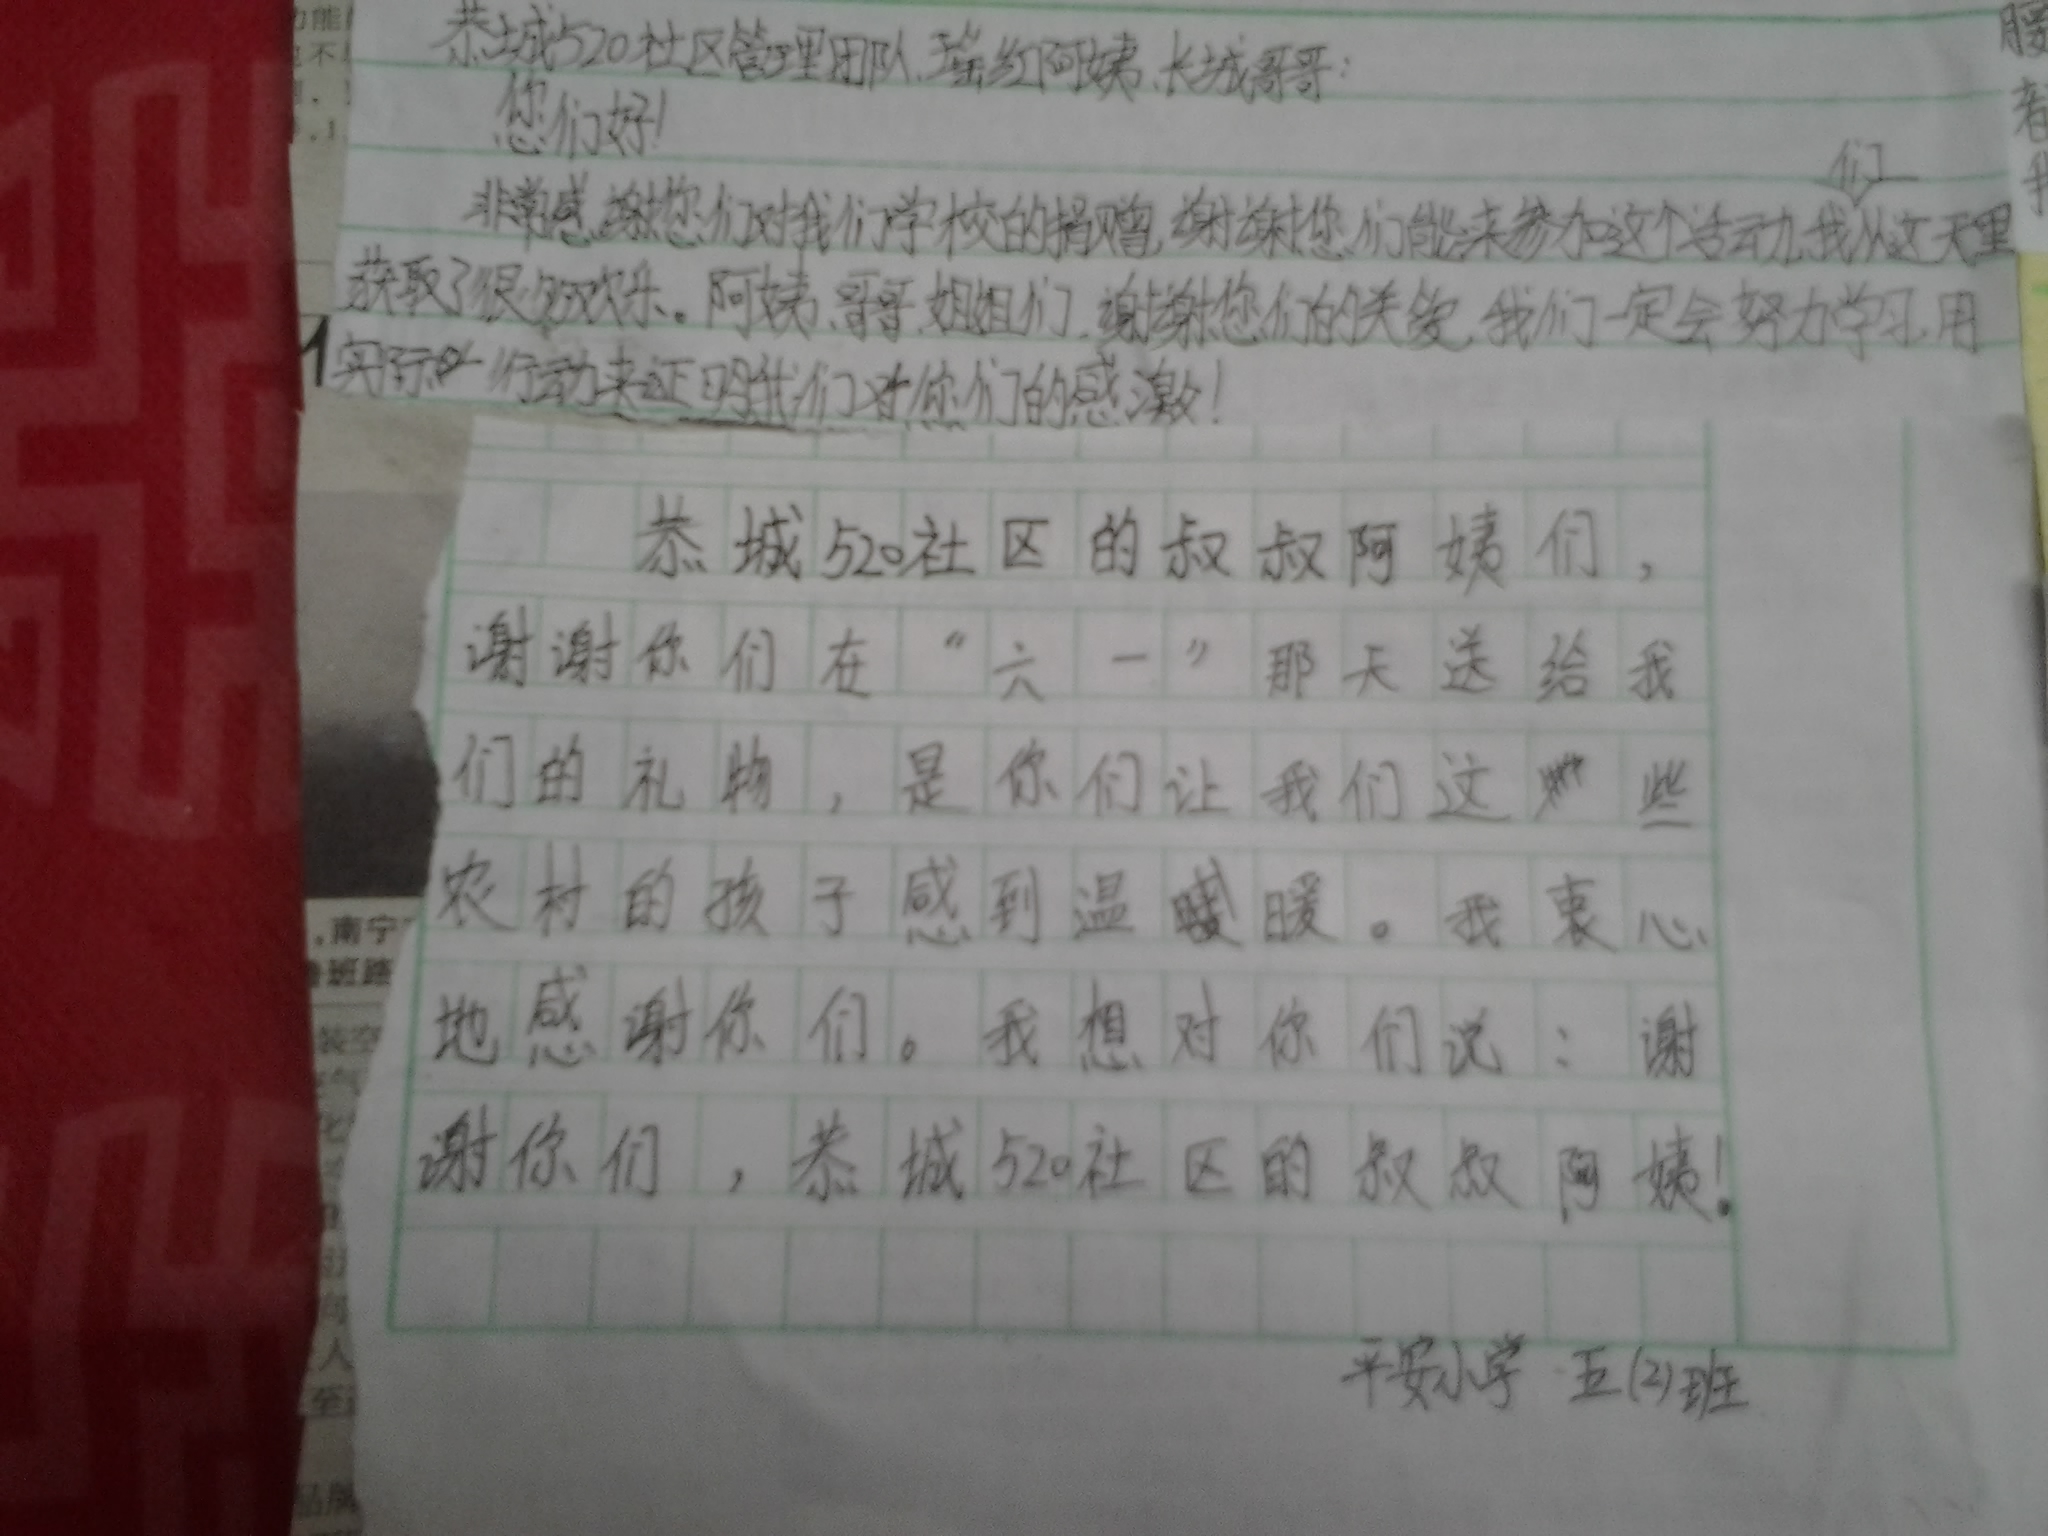 恭城520社区管理团队、瑶红阿姨、长城哥哥：
您们好！
非常感谢您们对我们学校的捐赠，谢谢您们能来参加这个活动，我们从这天里
获取了很多欢乐。阿姨、哥哥、姐姐们，谢谢您们的关爱，我们一定会努力学习，用
实际行动来证明我们对你们的感激！
恭城520社区的叔叔阿姨们，
谢谢你们在“六一”那天送给我
们的礼物，是你们让我们这些
农村的孩子感到温暖。我衷心
地感谢你们。我想对你们说：谢
谢你们，恭城520社区的叔叔阿姨！
平安小学 五(2)班
，南宁
班路
装空
品牌